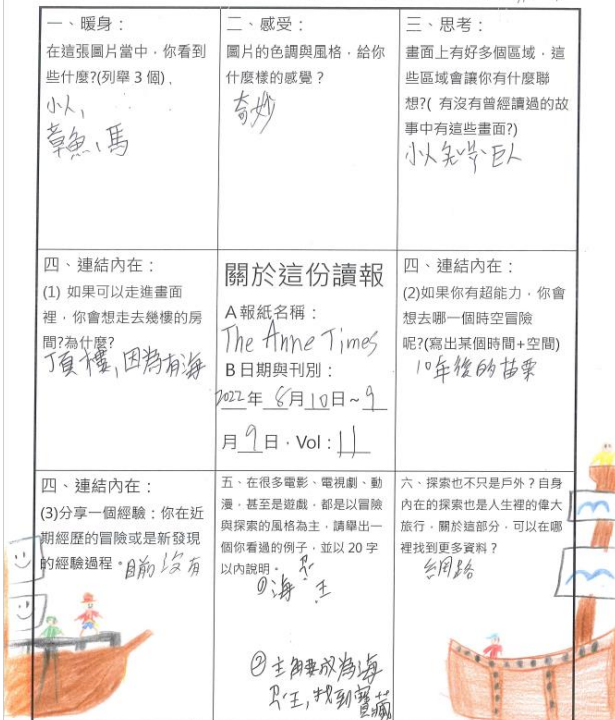 一、暖身：
在這張圖片當中，你看到
些什麼?(列舉 3 個)．
小人、
章魚、馬
二、感受：
圖片的色調與風格，給你
什麼樣的感覺？
奇妙
三、思考：
畫面上有好多個區域，這
些區域會讓你有什麼聯
想?( 有沒有曾經讀過的故
事中有這些畫面?)
小人 巨人
四、連結內在：
(1) 如果可以走進畫面
裡，你會想走去幾樓的房
間?為什麼?
頂樓,因為有海
關於這份讀報
A 報紙名稱：
The Anne Times
B 日期與刊別：
2022 年 8 月 10 日~ 9
月 9 日．Vol： 11
四、連結內在：
(2)如果你有超能力，你會
想去哪一個時空冒險
呢?(寫出某個時間+空間)
10年後的苗栗
四、連結內在：
(3)分享一個經驗：你在近
期經歷的冒險或是新發現
的經驗過程。目前沒有
五、在很多電影、電視劇、動
漫，甚至是遊戲，都是以冒險
與探索的風格為主，請舉出一
個你看過的例子，並以 20 字
以內說明。
①海 王
②主角要成為海
王,找到寶藏
六、探索也不只是戶外？自身
內在的探索也是人生裡的偉大
旅行，關於這部分，可以在哪
裡找到更多資料？
網路